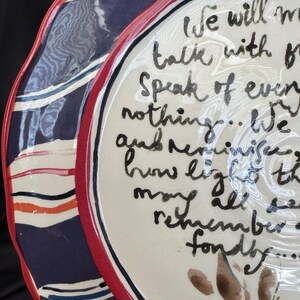 We will
talk with
Speak of
nothing... We
and reminisce
how light
may all
remember
fondly...